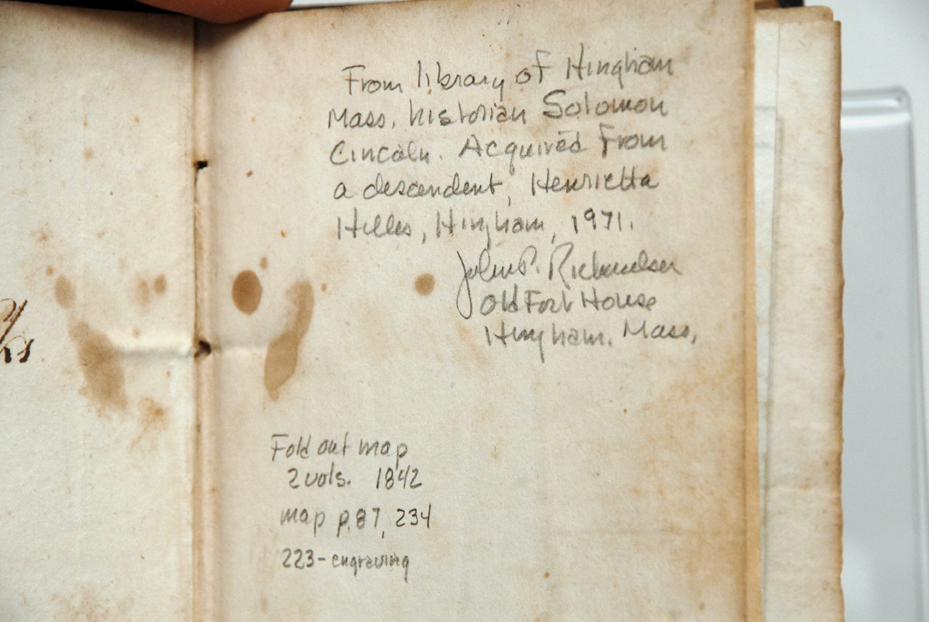 From library of Hingham
Mass. historian Solomon
Lincoln. Acquired from
a descendent, Henrietta
Hilles, Hingham, 1971.
John P. Richardson
Old Fort House
Hingham. Mass,
Fold out map
2 vols. 1842
map p. 87, 234
223 - engraving